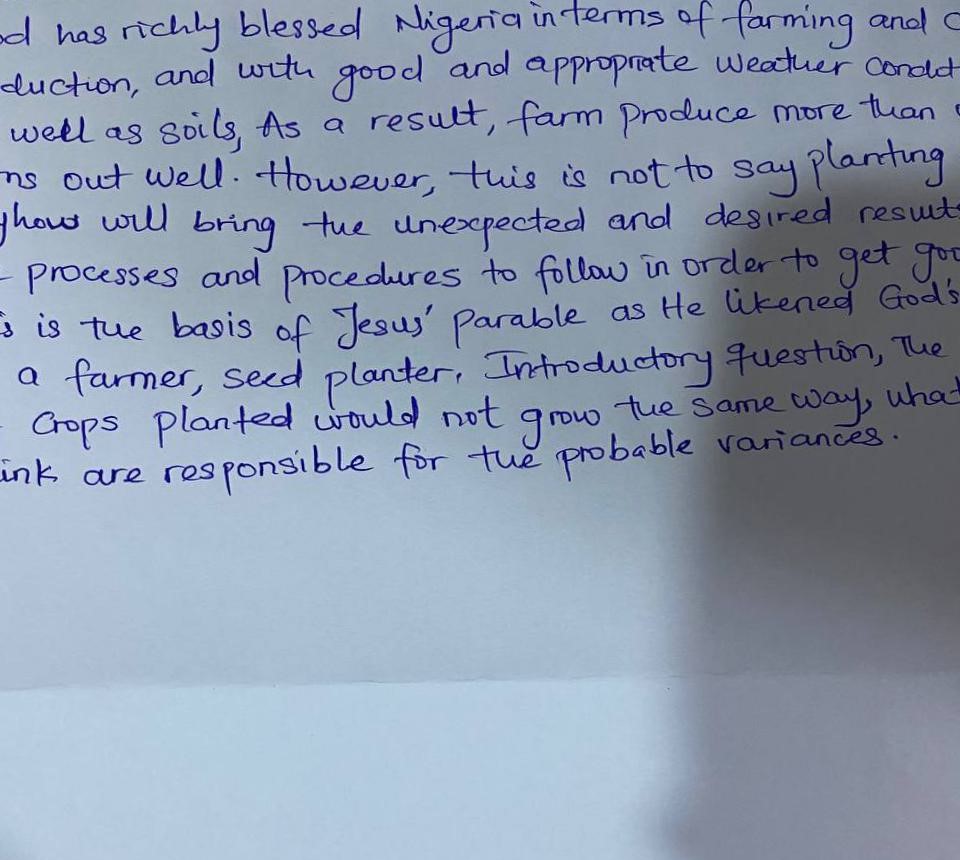 od has richly blessed Nigeria in terms of farming and c
duction, and with good and appropriate weather condit
well as soils, As a result, farm produce more than
ns out well. However, this is not to say planting
yhow will bring the unexpected and desired results
processes and procedures to follow in order to get goo
s is the basis of Jesus' parable as He likened God's
a farmer, seed planter. Introductory question, The
Crops planted would not grow the same way, what
ink are responsible for the probable variances.